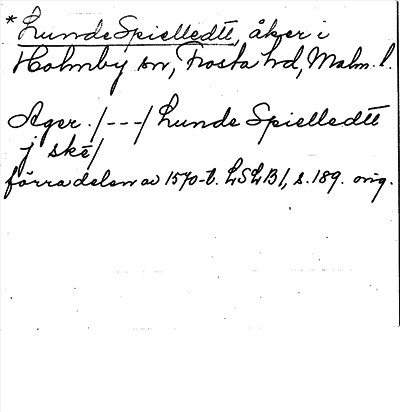 *Lunde Spielledtt, åker i
Holmby sn, Frosta hd, Malm. l.
Ager /---/ Lunde Spielledtt
j ske/
förra delen av 1570-t. LSLB1, s. 189. orig.